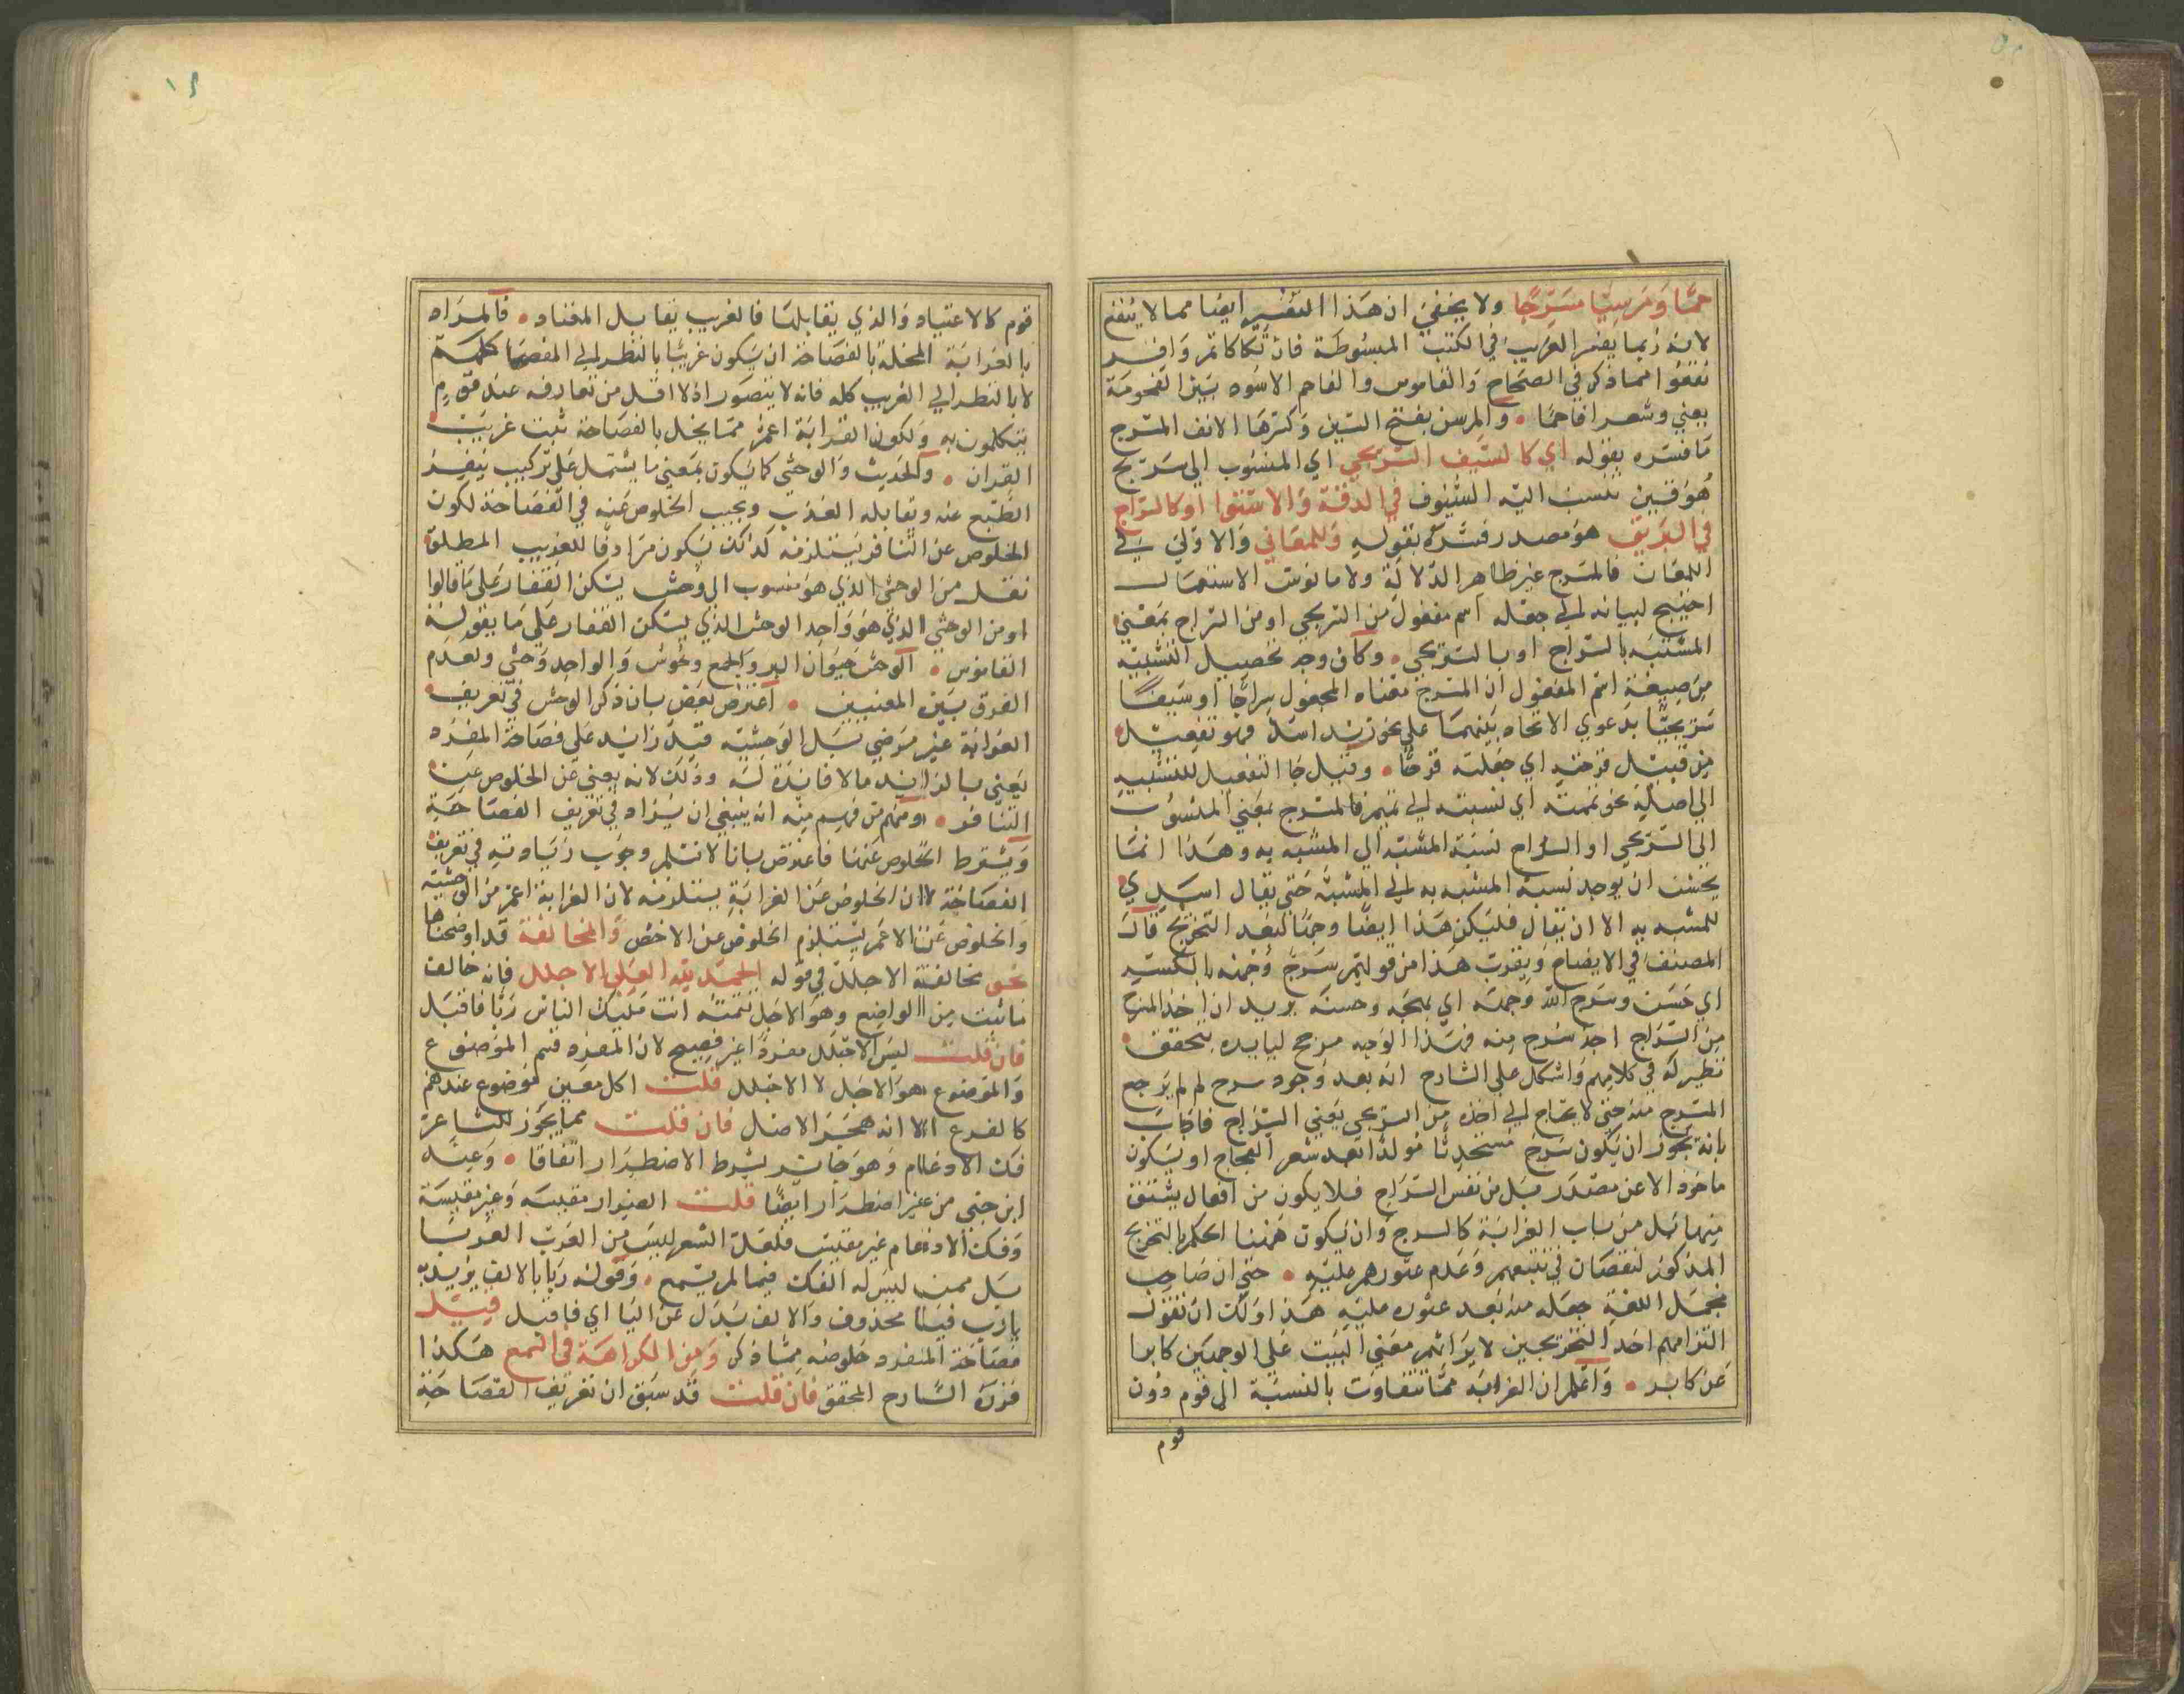 حمًا وَمَرسِنًا مسَرَّجًا ولا يخفي ان هَذا التفسير ايضا مما لا ينفع
لانه ربما يفسر الغريب في الكتب المبسُوطة فان تكاكاتم وَافر
نقعُوا مما ذكر في الصحَاح وَالقاموس والفاحم الاسْود بَيّن الفحومَة
يعني وشعرا فاحمًا • وَالمرسن بفتح السّين وَكسْرهَا الانف المسَرج
مَا فسّره بقوله اي كالسَّيف السّريجي اي المنسُوب الي سرَيج
هُوَ قين تنسب اليه السُّيوف في الدقة وَالاستوا او كالسراج
في البَريق هوَ مصدر فسّره بقولهِ وَللمعَاني وَالاولي في
اللمعَان فالمسَرج غير ظاهر الدّلالة ولا مانوسَ الاستعمَال
احتيج لبيانه الي جعْله اسم مفعول من السّريجي او من السّراج بمعْني
المشبّه بالسّراج او بالسّريجي • وكان وجه تحصيل التشبيه
مِن صِيغة اسْم المفعول ان المسَرج معْناه المجعول سِراجًا او سَيفًا
سُريجيًّا بدعوي الاتحاد بَينهمَا علي نحو زيد اسد فهو تفعيل
مِن قبيل فرحته اي جعلته فرحًا • وقيل جا التفعيل للتشبيه
الي اصله نحو تممته اي نسبته الي تميم فالمسرج بمعْني المنسُوب
الي السّريجي او السراج نسبَة المشبّه الي المشبه به وهَذا انمَا
يحسن ان يوجد نسبَة المشبه به الي المشبّه حَتي يقال اسَدِي
للمشبه به الا ان يقال فليكن هَذا ايضًا وجهًا لبعد التخريج قال
المصنف في الايضاح وَيقرب هَذا من قولهم سَرج وَجهُه بالكسر
اي حَسَن وسَرج الله وَجهَه اي بهجَه وحسنَه يريد ان اخذ المسَرج
مِن السّراج اخذ سرج مِنه فهذا الوَجه مرجح لبابه بتحقق
نظير له في كلامهم وَاشكل علي الشارح انه بعد وُجود سرج لم لم يَرجع
المسّرج منه حَتي لا يحتاج الي اخذه من السّريجي يَعني السّراج فاجَابَ
بانه يجوز ان يكون سَرج مستحدثًا مولدًا بعد شعر العجاج او يَكون
ماخوذ الا عن مصْدَر بَل من نفس السّرَاج فلا يكون من افعال يشتق
مِنها بَل من باب الغرابَة كالسرج وَان يَكون هَهنا الحكم بالتخريج
المذكور لنقصَان في تتبعهم وَعَدم عثورهم عليهِ • حَتي ان صَاحب
مجمَل اللغة جعَله منه بَعد عثوره عليهِ هَذا وَلك ان تقول
التزامهم احَد التخريجَين لا يرَاثهم معْني البَيت عَلي الوجهَين كابرا
عَن كابر • وَاعْلم ان الغرَابَة ممّا تتفاوَت بالنسبَة الي قوم دُون
قوم
١٢
قوم كالاعتياد وَالذي يقابلهَا فالغريب يقابل المعْتاد • فالمرَاد
بالغرابَة المخلة بالفصَاحَة ان يَكون غريبًا بالنظر الي الفصحا كلهم
لا بالنظر الي الغريب كله فانه لا يتصَور اذ لا اقل من تعارفه عند قوم
يتكلمون به وَلكون الغرَابَة اعم ممّا يخل بالفصَاحَة ثبت غريب
القرآن • وَالحَديث وَالوحشي كمَا يَكون بمَعْني ما يشتمل عَلي تركيب يَنفر
الطّبع عنه ويقابله العَذب ويجب الخلوص عَنه في الفصَاحَة لكون
الخلوص عن التّنافر يَستلزمه كَذلك يَكون مرَادفًا للغريب المطلق
نقل من الوحشي الذي هوَ منسوب الي وُحش يسْكن القفار عَلي مَا قالوا
او من الوحشي الذي هوَ وَاحِد الوحش الذي يسْكن القفار عَلي مَا يقوله
القاموس • الوحش حَيوَان البر والجمع وحُوش وَالواحِد وَحشي ولعَدم
الفرق بَين المعنيين • اعْترض بَعض بان ذكر الوحش في تعريف
الغرَابَة غير مَرضي بَل الوَحشيَّة قيد زائد عَلي فصَاحَة المفرَد
يَعني بالزائد مالا فايدَة لهُ وذلك لانه يغني عَن الخلوص عَن
التّنافر • ومنهم مَن فهم مِنه انه ينبغي ان يزاد في تعريف الفصَاحَة
وَيشرط الخلوص عَنها فاعترض بانا لا نسلم وجوب زيادته في تعريف
الفصَاحَة لان الخلوص عَن الغرابَة يستلزمه لان الغرابة اعَم من الوحشيَّة
وَالخلوص عن الاعَم يَستلزم الخلوص عن الاخص وَالمخالفة قد اوضحناها
نحو مخالفة الاجلل في قوله الحمد لله العَلي الاجلل فانه خالف
مَا ثبت مِن الواضِع وهوَ الاجَل تتمته انت مَليك الناس رَبًّا فاقبَل
فان قلت ليسَ الاجلل مفرَدًا غير فصِيح لان المفرَد قسم الموضوع
وَالموضوع هوَ الاجَل لا الاجلل قلت اكل معْين موضوع عندهم
كالفرع الا انه هجَرَ الاصْل فان قلت مما يجوز للشاعر
فك الادغام وَهوَ جَائز بشرط الاضطرَار اتفاقا • وَعند
ابن جني من غير اضطرَار ايضًا قلت الضرار مقيسَة وَغير مقيسَة
وَفك الادغام غير مقيس فلعَل الشعر ليسَ من العَرب العَربا
بَل ممن ليسَ له الفك فيما لم يسْمع • وَقوله رَبًّا بالالف يؤيد به
يارب فيَا محذوف والالف بَدل عَن اليَا اي فاقبل قِيل
فصَاحَة المفرد خلوصُه ممّا ذكر وَمن الكراهَة في السّمع هَكذا
قررَه الشارح المحقق فان قلت قد سَبق ان تعْريف الفصَاحَة